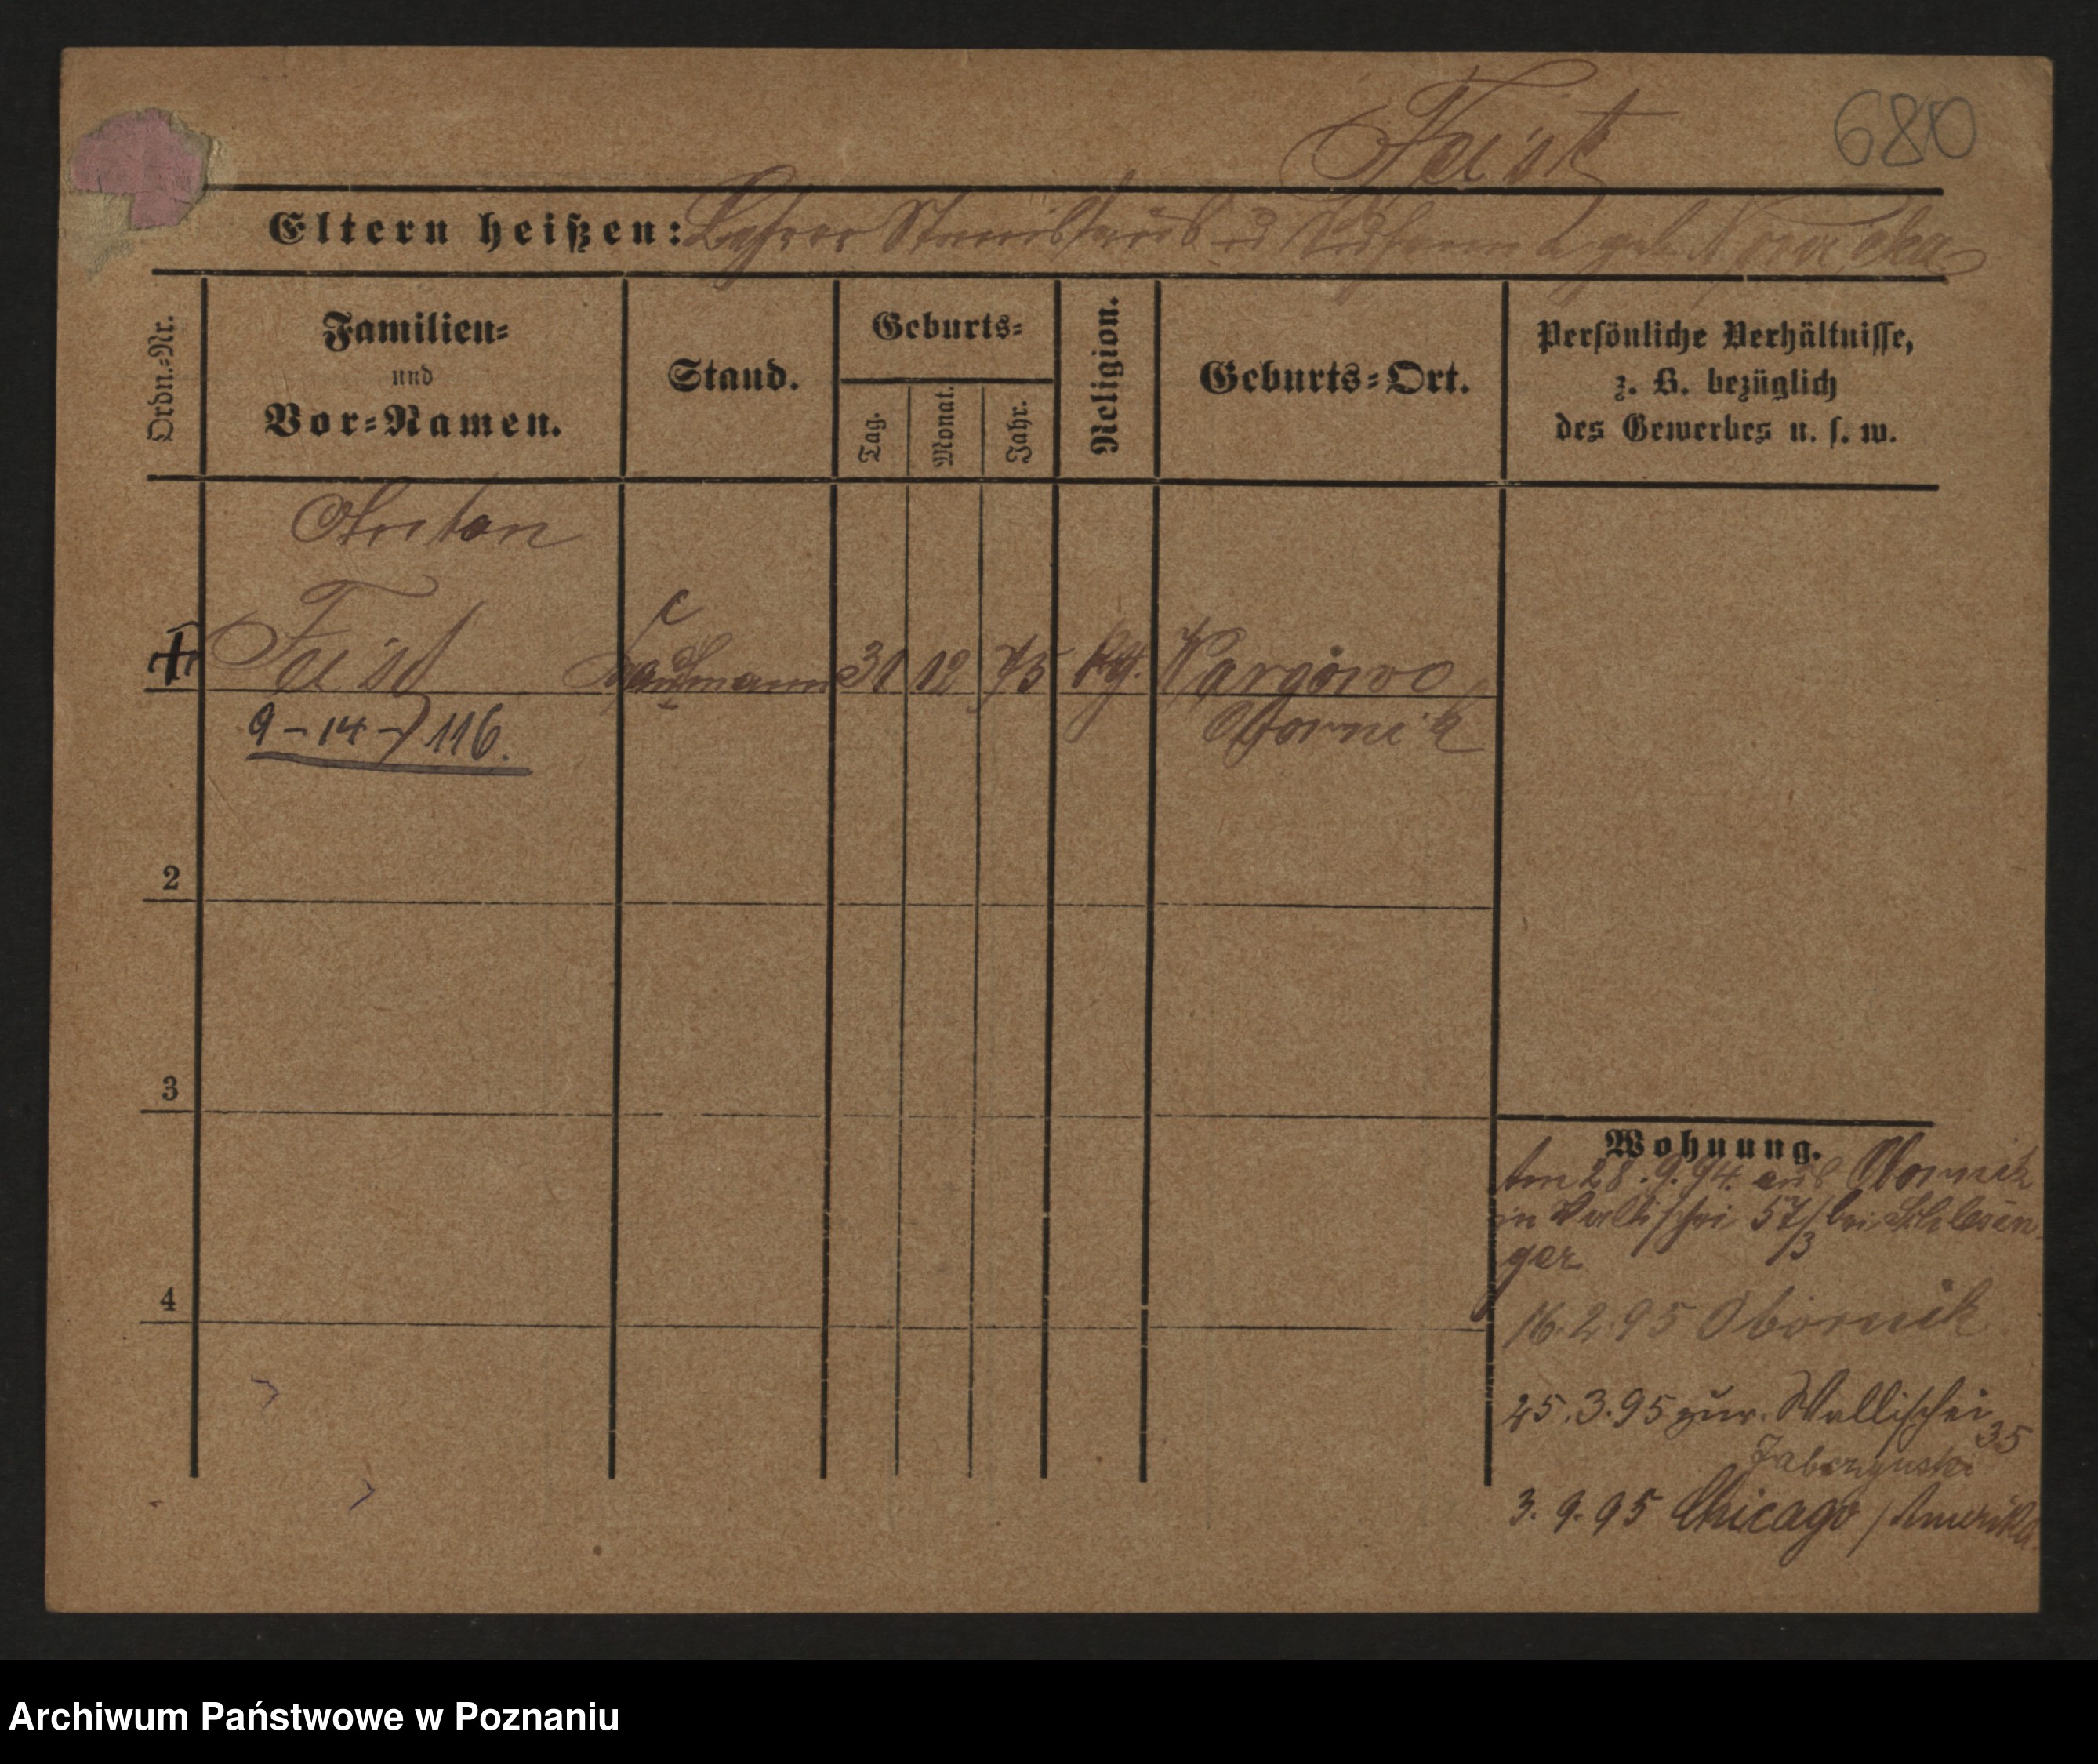 Feist
680
Eltern heißen: Lehrer Stanislaus u geb.
Ordn.-Nr.
Familien-
und
Vor-Namen.
Stand.
Geburts-
Tag.
Monat.
Jahr.
Religion.
Geburts-Ort.
Persönliche Verhältnisse,
z. B. bezüglich
des Gewerbes u. s. w.
Anton
Feist Kaufmann 31 12 75 kth. Wargowo
Obornik
9-14-116.
2
3
4
Wohnung.
Am 28.9.94. aus Obornik
in Wallischei 57/3 bei Schlesin
ger
16.2.95 Obornik
25.3.95 zur. Wallischei 35
3.9.95 Chicago / Amerika
Archiwum Państwowe w Poznaniu